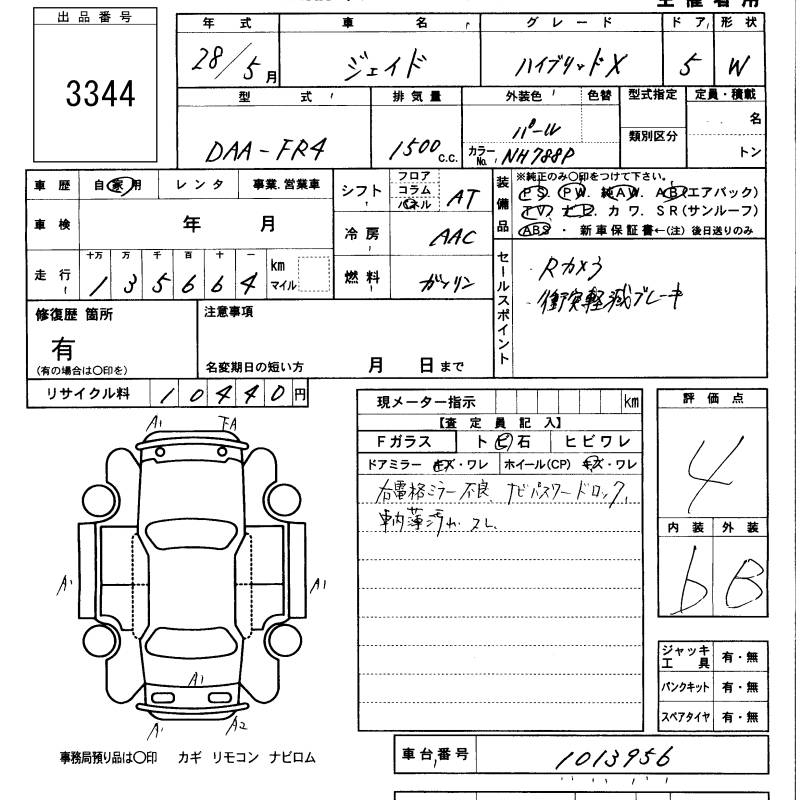 主催者用
出品番号
3344
年式 車名 グレード ドア 形状
28/5月 ジェイド ハイブリッドX 5 W
型式 排気量 外装色 色替 型式指定 定員・積載
DAA-FR4 1500c.c. パール 名
カラーNo. NH788P 類別区分 トン
車歴 自家用 レンタ 事業.営業車
車検 年 月
走行 十万 万 千 百 十 一
1 3 5 6 6 4 km マイル
シフト フロア コラム パネル AT
冷房 AAC
燃料 ガソリン
装備品 ※純正のみ○印をつけて下さい。
PS. PW. 純AW. AB(エアバック)
TV. ナビ. カワ. SR(サンルーフ)
ABS ・ 新車保証書←(注) 後日送りのみ
セールスポイント
・Rカメラ
・衝突軽減ブレーキ
修復歴 箇所
有
(有の場合は○印を)
注意事項
名変期日の短い方 月 日まで
リサイクル料 10440円
現メーター指示 km
【査定員記入】
Fガラス トビ石 ヒビワレ
ドアミラー キズ・ワレ ホイール(CP) キズ・ワレ
右電格ミラー不良、ナビパスワードロック、
車内薄汚れ スレ
評価点
4
内装 外装
b B
ジャッキ工具 有・無
パンクキット 有・無
スペアタイヤ 有・無
A1
A1 A1
A1
A1 A2
事務局預り品は○印 カギ リモコン ナビロム
車台番号 1013956